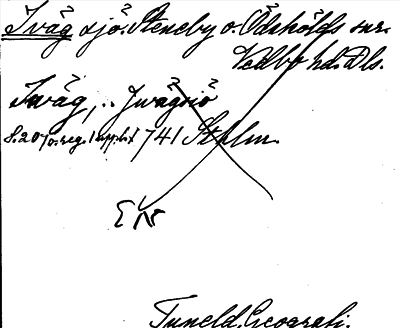 Iväg sjö. Steneby o. Ödskölds snr.
Vedbo hd. Dls.
Iväg, .. Iwägsiö
S. 20 o. reg. (uppl. 1741 Sthlm.
Tuneld, Geografi.